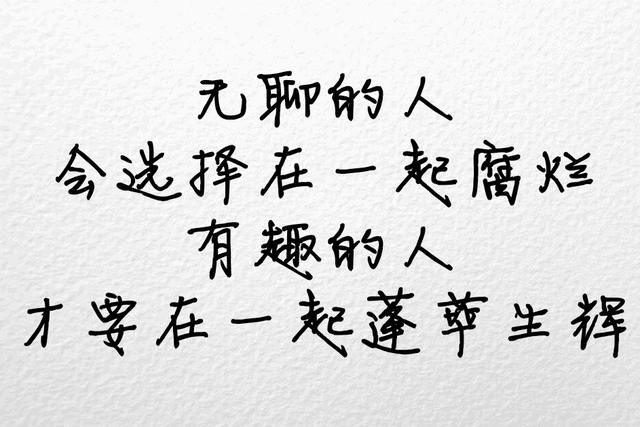 无聊的人
会选择在一起腐烂
有趣的人
才要在一起蓬荜生辉